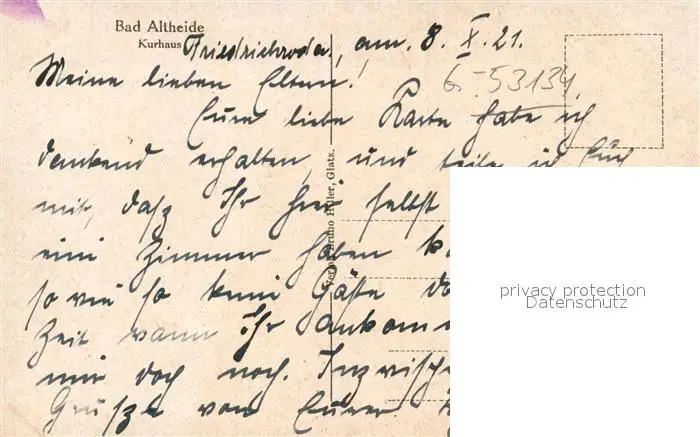 Bad Altheide
Kurhaus
Friedrichroda, am. 8. X. 21.
Meine lieben Eltern!
G-53134
Eure liebe Karte habe ich
dankend erhalten, und teile ich Euch
mit, dasz Ihr hier selbst
ein Zimmer haben
so wie so keine Gäste
Zeit wann Ihr ankomm
mir doch noch. Inzwisch
Grusze von Eurer
Verlag Bruno Hiller, Glatz.
privacy protection
Datenschutz